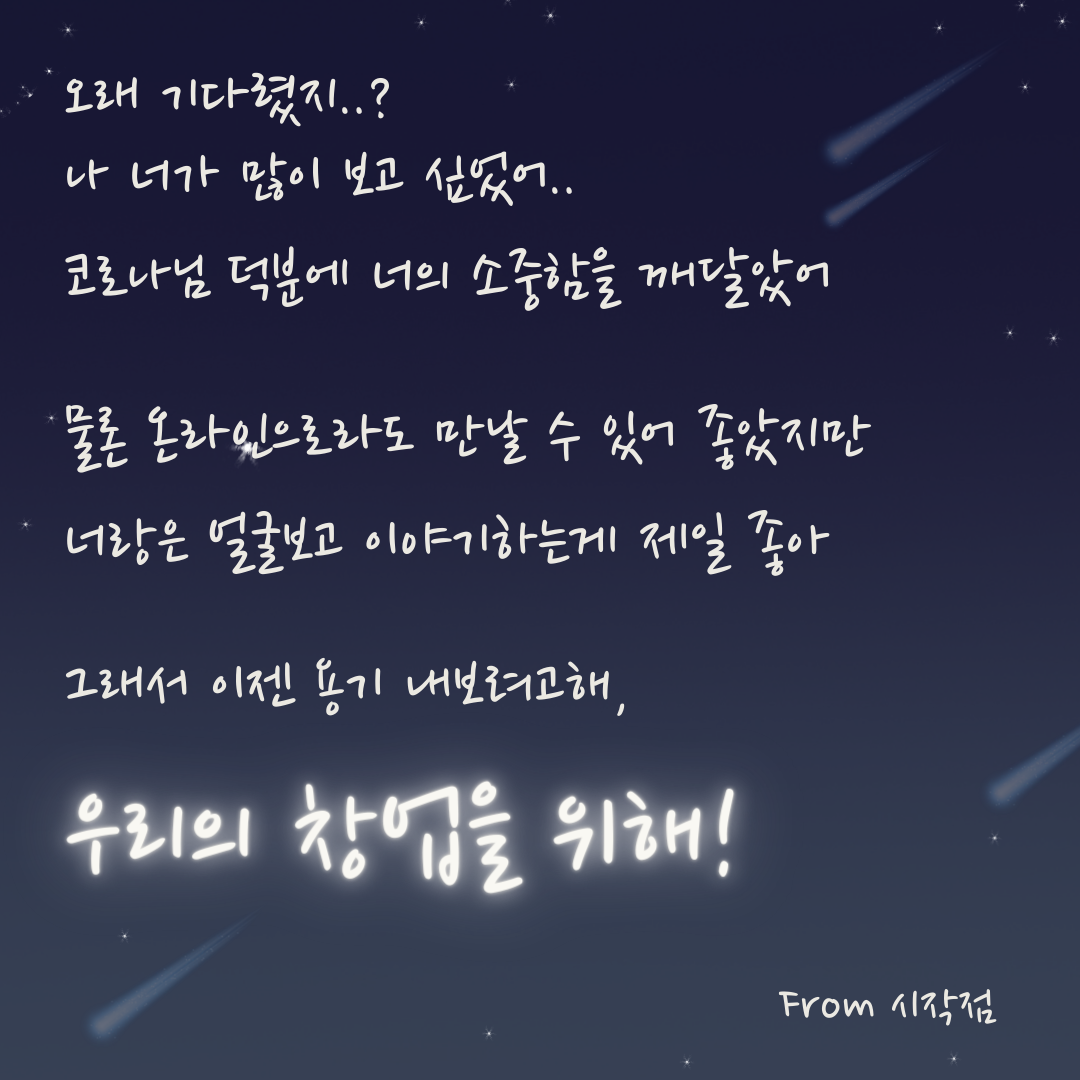 오래 기다렸지..?
나 너가 많이 보고 싶었어..
코로나님 덕분에 너의 소중함을 깨달았어
물론 온라인으로라도 만날 수 있어 좋았지만
너랑은 얼굴보고 이야기하는게 제일 좋아
그래서 이젠 용기 내보려고해,
우리의 창업을 위해!
From 시작점